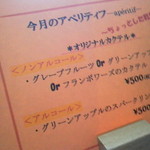 今月のアペリティフ~apéritif~
~ちょっとしたお
*オリジナルカクテル*
<ノンアルコール>
・グレープフルーツ or グリーンアップ
or フランボワーズのカクテル
¥500(
<アルコール>
・グリーンアップルのスパークリン
¥